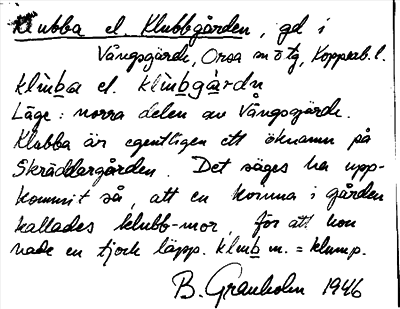 Klubba el. Klubbgården, gd i
Vångsgärde, Orsa sn o tg, Kopparb. l.
klùba el. klùbgàrdn
Läge: norra delen av Vångsgärde.
Klubba är egentligen ett öknamn på
Skräddargården. Det säges ha upp-
kommit så, att en kvinna i gården
kallades klubb-mor, för att hon
hade en tjock läpp. klub m. = klump.
B. Granholm 1946